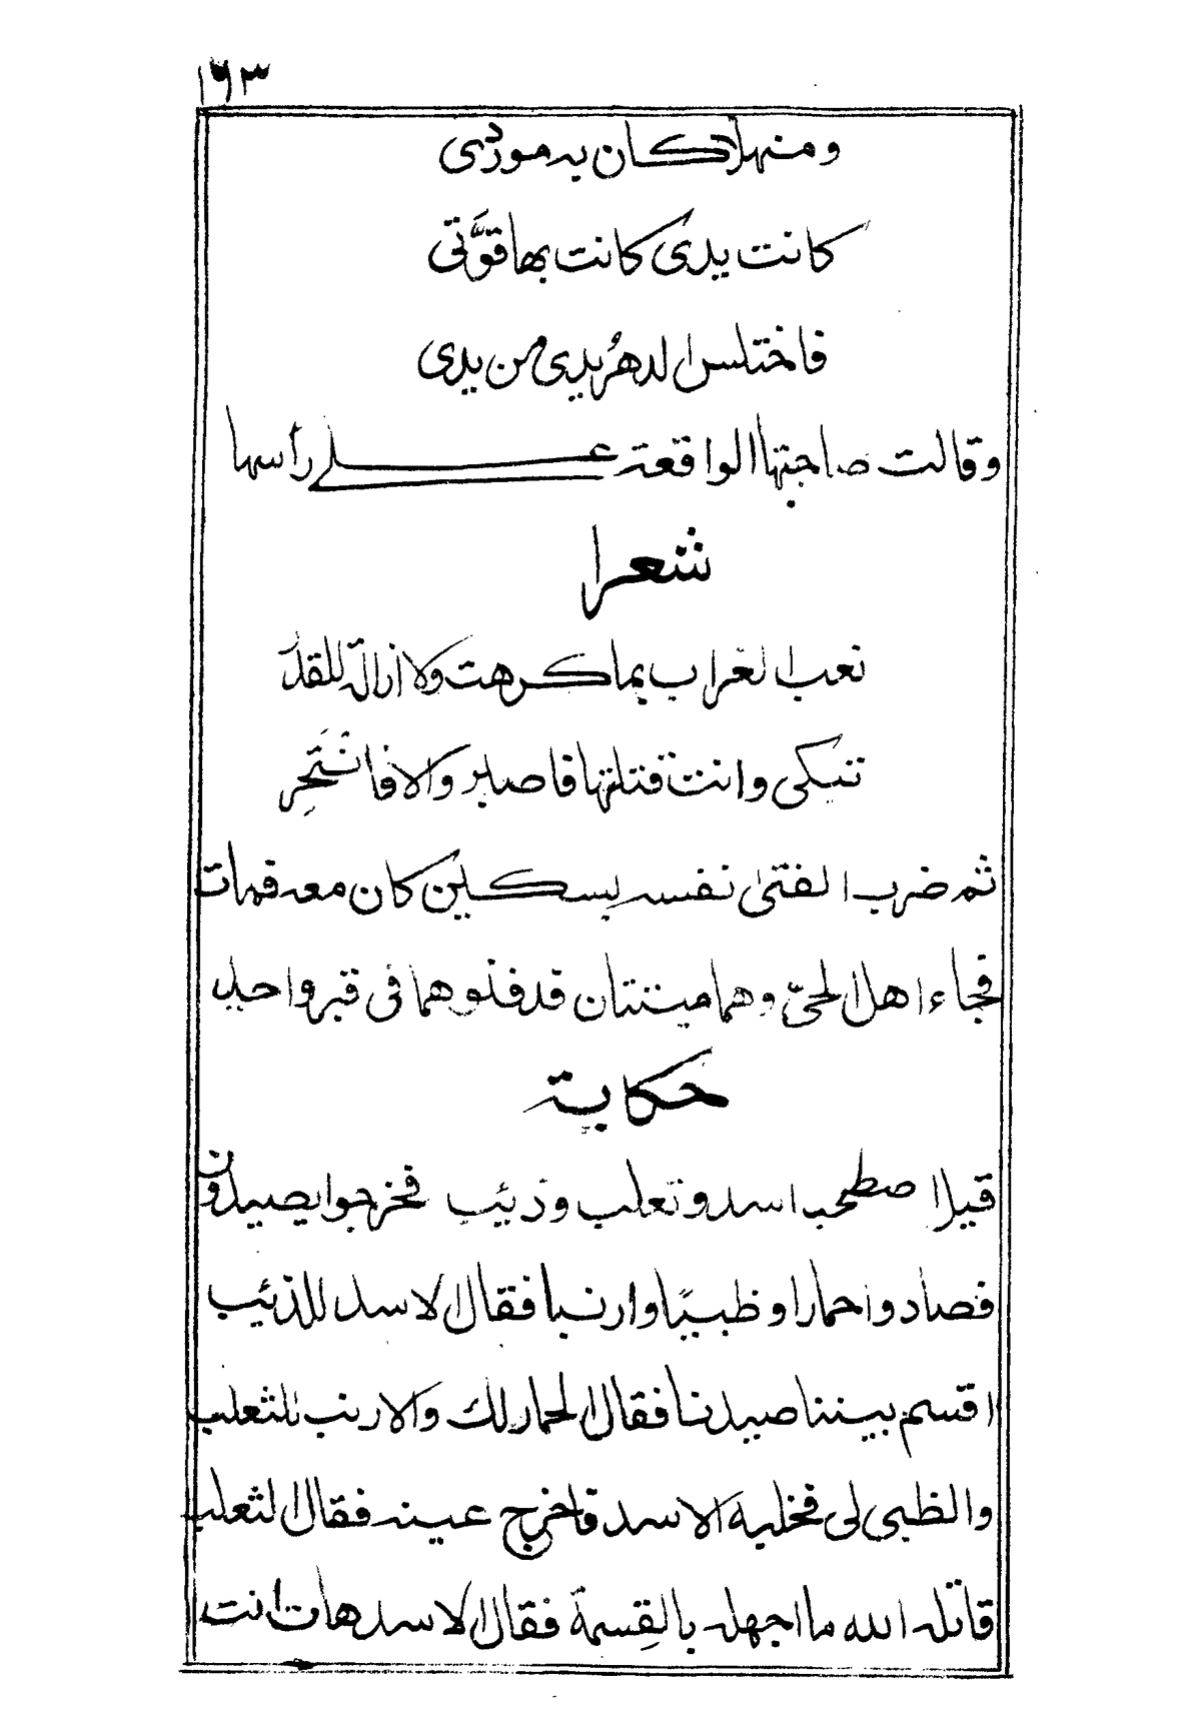 ١٦٣
ومنهلا كان به موردي
كانت يدى كانت بها قوَّتى
فاختلس الدهرُ يدى من يدى
وقالت صاحبتها الواقعة على رأسها
شعرا
نعب الغراب بما كرهت ولا ازالة للقدَر
تبكى وانت قتلتها فاصبر والا فانتَحِر
ثم ضرب الفتى نفسه بسكين كان معه فمات
فجاء اهل الحىّ وهما ميتتان فدفنوهما فى قبر واحد
حكاية
قيل اصطحب اسد وثعلب وذئيب فخرجوا يصيدون
فصادوا حمارا وظبيًا وارنبا فقال الاسد للذئيب
اقسم بيننا صيدنا فقال الحمار لك والارنب للثعلب
والظبى لى فخلبه الاسد فاخرج عينه فقال الثعلب
قاتله الله ما اجهله بالقِسمة فقال الاسد هات انت